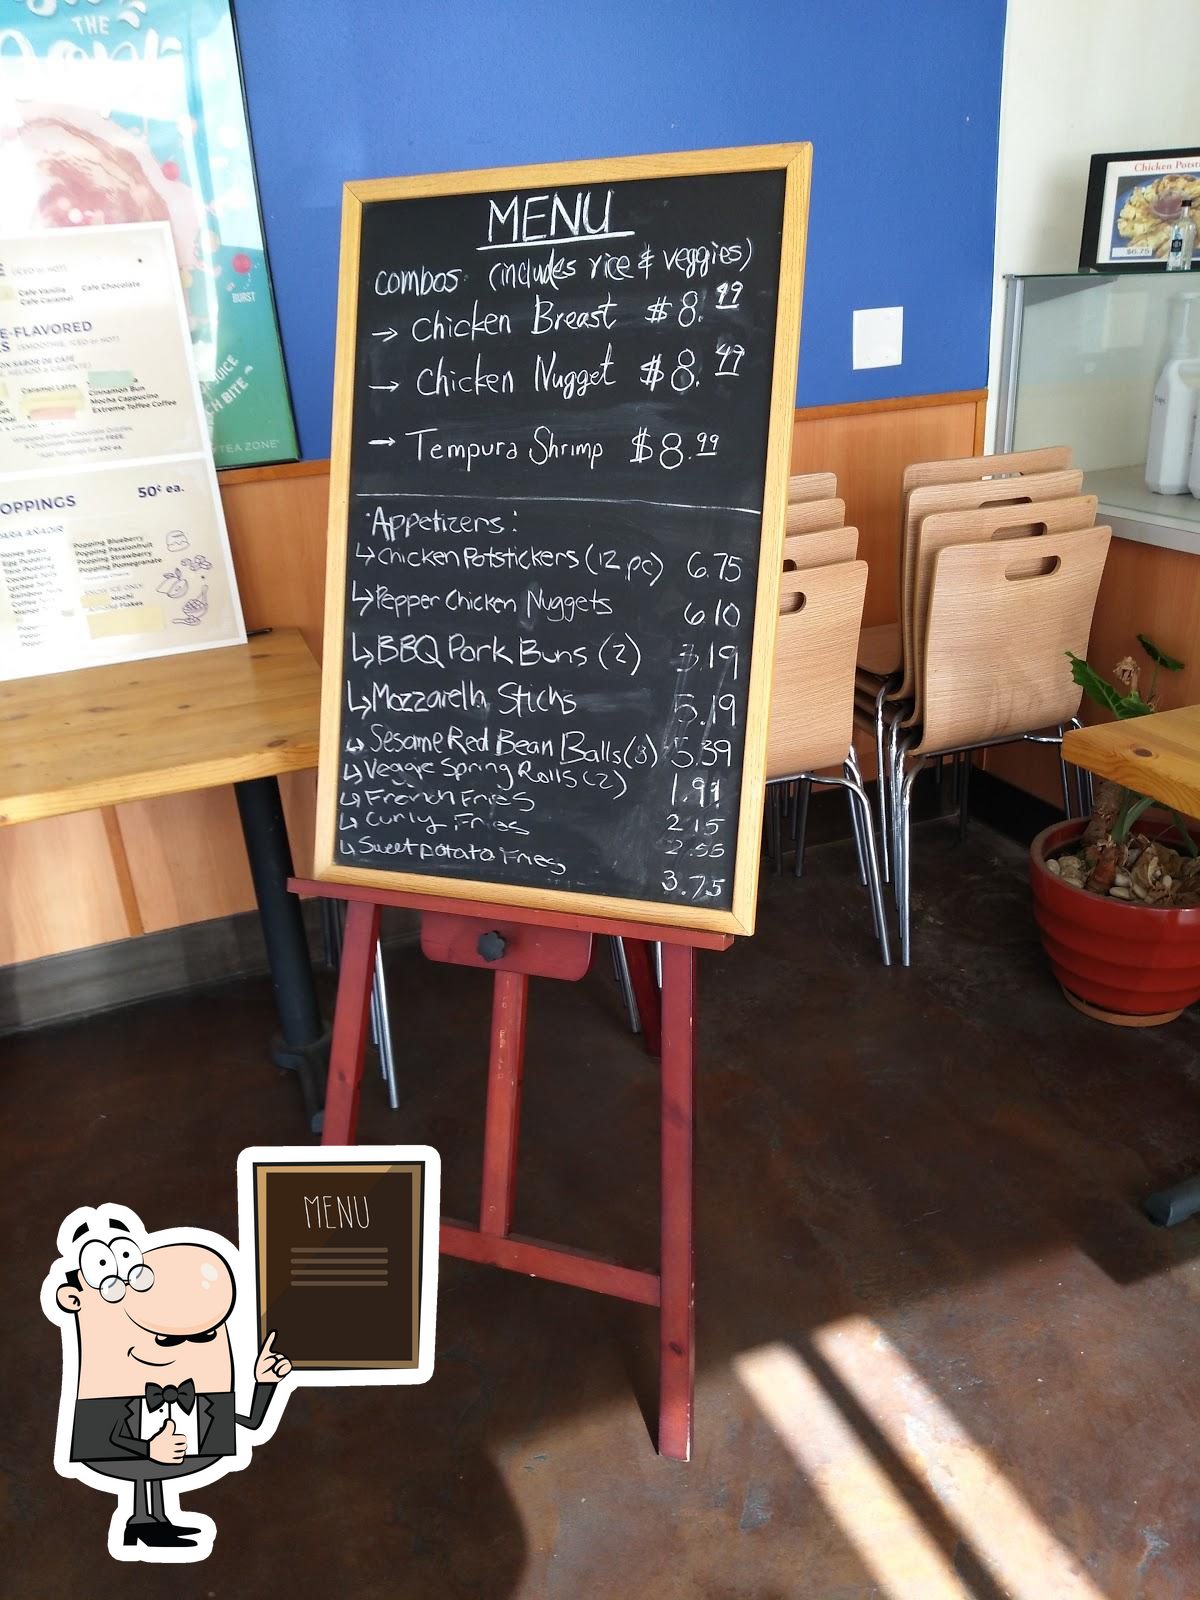 THE
BURST
JUICE
BITE
TEA ZONE
(ICED or HOT)
Cafe Vanilla Cafe Chocolate
Cafe Caramel
E-FLAVORED
(SMOOTHIE, ICED or HOT)
Caramel Latte
Cinnamon Bun
Mocha Cappucino
Extreme Toffee Coffee
OPPINGS 50¢ ea.
PARA AÑADIR
Popping Blueberry
Popping Passionfruit
Popping Strawberry
Popping Pomegranate
Egg Pudding
Taro Pudding
SNOW ICE ONLY
Mochi
MENU
combos (includes rice & veggies)
→ Chicken Breast $8.49
→ Chicken Nugget $8.49
→ Tempura Shrimp $8.99
Appetizers:
↳ Chicken Potstickers (12 pc) 6.75
↳ Pepper Chicken Nuggets 6.10
↳ BBQ Pork Buns (2) 3.19
↳ Mozzarella Sticks 5.19
↳ Sesame Red Bean Balls (8) 5.39
↳ Veggie Spring Rolls (2) 1.91
↳ French Fries 2.15
↳ Curly Fries 2.55
↳ Sweet potato Fries 3.75
Chicken Potst
$6.75
MENU